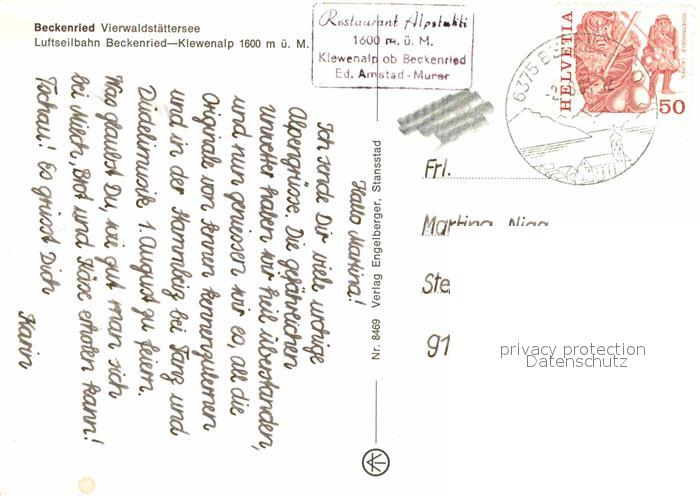 Beckenried Vierwaldstättersee
Luftseilbahn Beckenried—Klewenalp 1600 m ü. M.
Restaurant Alpstubli
1600 m. ü. M.
Klewenalp ob Beckenried
Ed. Amstad-Murer
HELVETIA
50
6375 BE
Hallo Martina!
Ich sende Dir viele urchige
Alpengrüsse. Die gefährlichen
Unwetter haben wir heil überstanden,
und nun geniessen wir es, all die
Originale von Ennen kennenzulernen
und in der Hammbeiz bei Tanz und
Düdelimusik 1. August zu feiern.
Was glaubst Du, wie gut man sich
bei Milch, Brot und Käse erholen kann!
Tschau! Es grüsst Dich
Karin
Nr. 8469 Verlag Engelberger, Stansstad
Frl.
Martina
Ste
91
privacy protection
Datenschutz